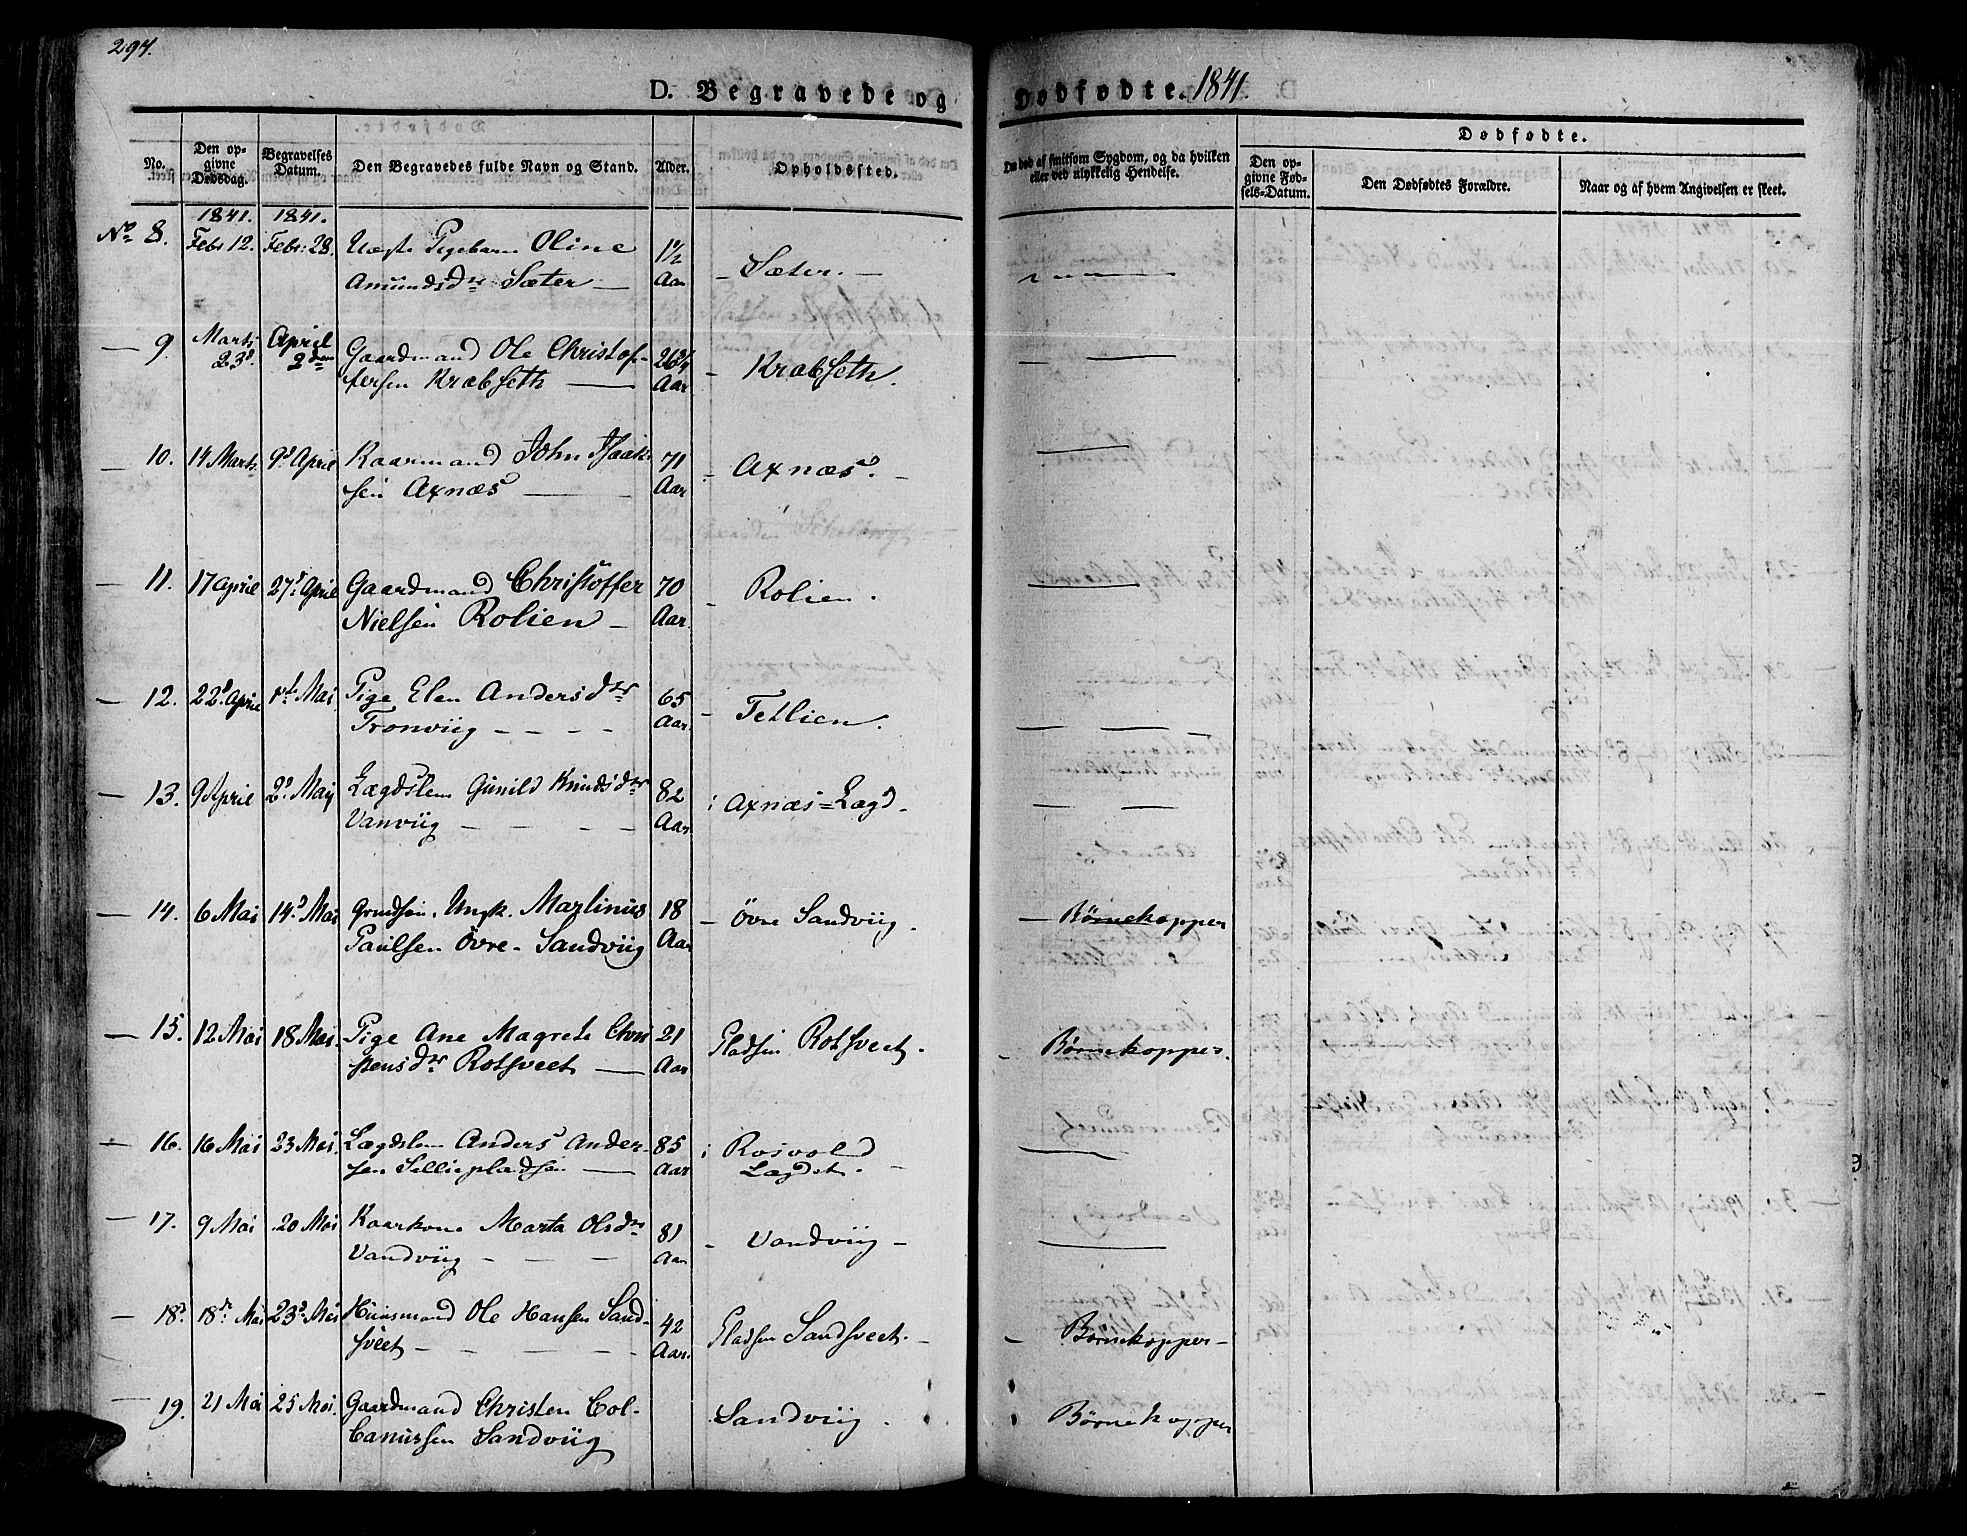 297.
D. Begravede og Dødfødte. 1841.
No.
Den opgivne Dødsdag.
Begravelses Datum.
Den Begravedes fulde Navn og Stand.
Alder.
Opholdssted.
Om død af smitsom Sygdom, og da hvilken
eller ved ulykkelig Hendelse.
Dødfødte.
Den opgivne Fødsels-Datum.
Den Dødfødtes Forældre.
Naar og af hvem Angivelsen er skeet.
1841. 1841.
No 8. Febr 12. Febr: 28. Uægte Pigebarn Oline 1 1/2 Sæter.
Amundsdr Sæter Aar
9. Marts 23d April 2den Gaardmand Ole Christof- 26 Kræbseth.
fersen Kræbseth Aar
10. 14 Marts 9d April Kaarmand John Isaak- 71 Axnæs.
sen Axnæs Aar
11. 17 April 27d April Gaardmand Christoffer 70 Rolien.
Nielsen Rolien Aar
12. 22d April 1st Mai Pige Elen Andersdtr 65 Tetlien.
Tronviig Aar
13. 9 April 2d May Lægdslem Gunild Knudsdtr 82 i Axnæs=Lægd.
Vanviig Aar
14. 6 Mai 14d Mai Grudsøn. Ungk. Martinus 18 Övre Sandviig. Børnekopper
Paulsen Övre Sandviig Aar
15. 12 Mai 18 Mai Pige Ane Magrete Chri- 21 Pladsen Rotsveet. Børnekopper.
stensdtr Rotsveet Aar
16. 16 Mai 23 Mai. Lægdslem Anders Ander- 85 i Rosvold
sen Selliepladsen Aar Lægdet.
17. 9 Mai 20 Mai Kaarkone Marta Olsdtr 81 Vandviig
Vandviig Aar
18d 18de Mai 23d Mai Huusmand Ole Hansen Sand- 42 Pladsen Sandsveet. Børnekopper
sveet Aar.
19. 21 Mai 25 Mai. Gaardmand Christen Col- Sandviig. Børnekopper
banussen Sandviig